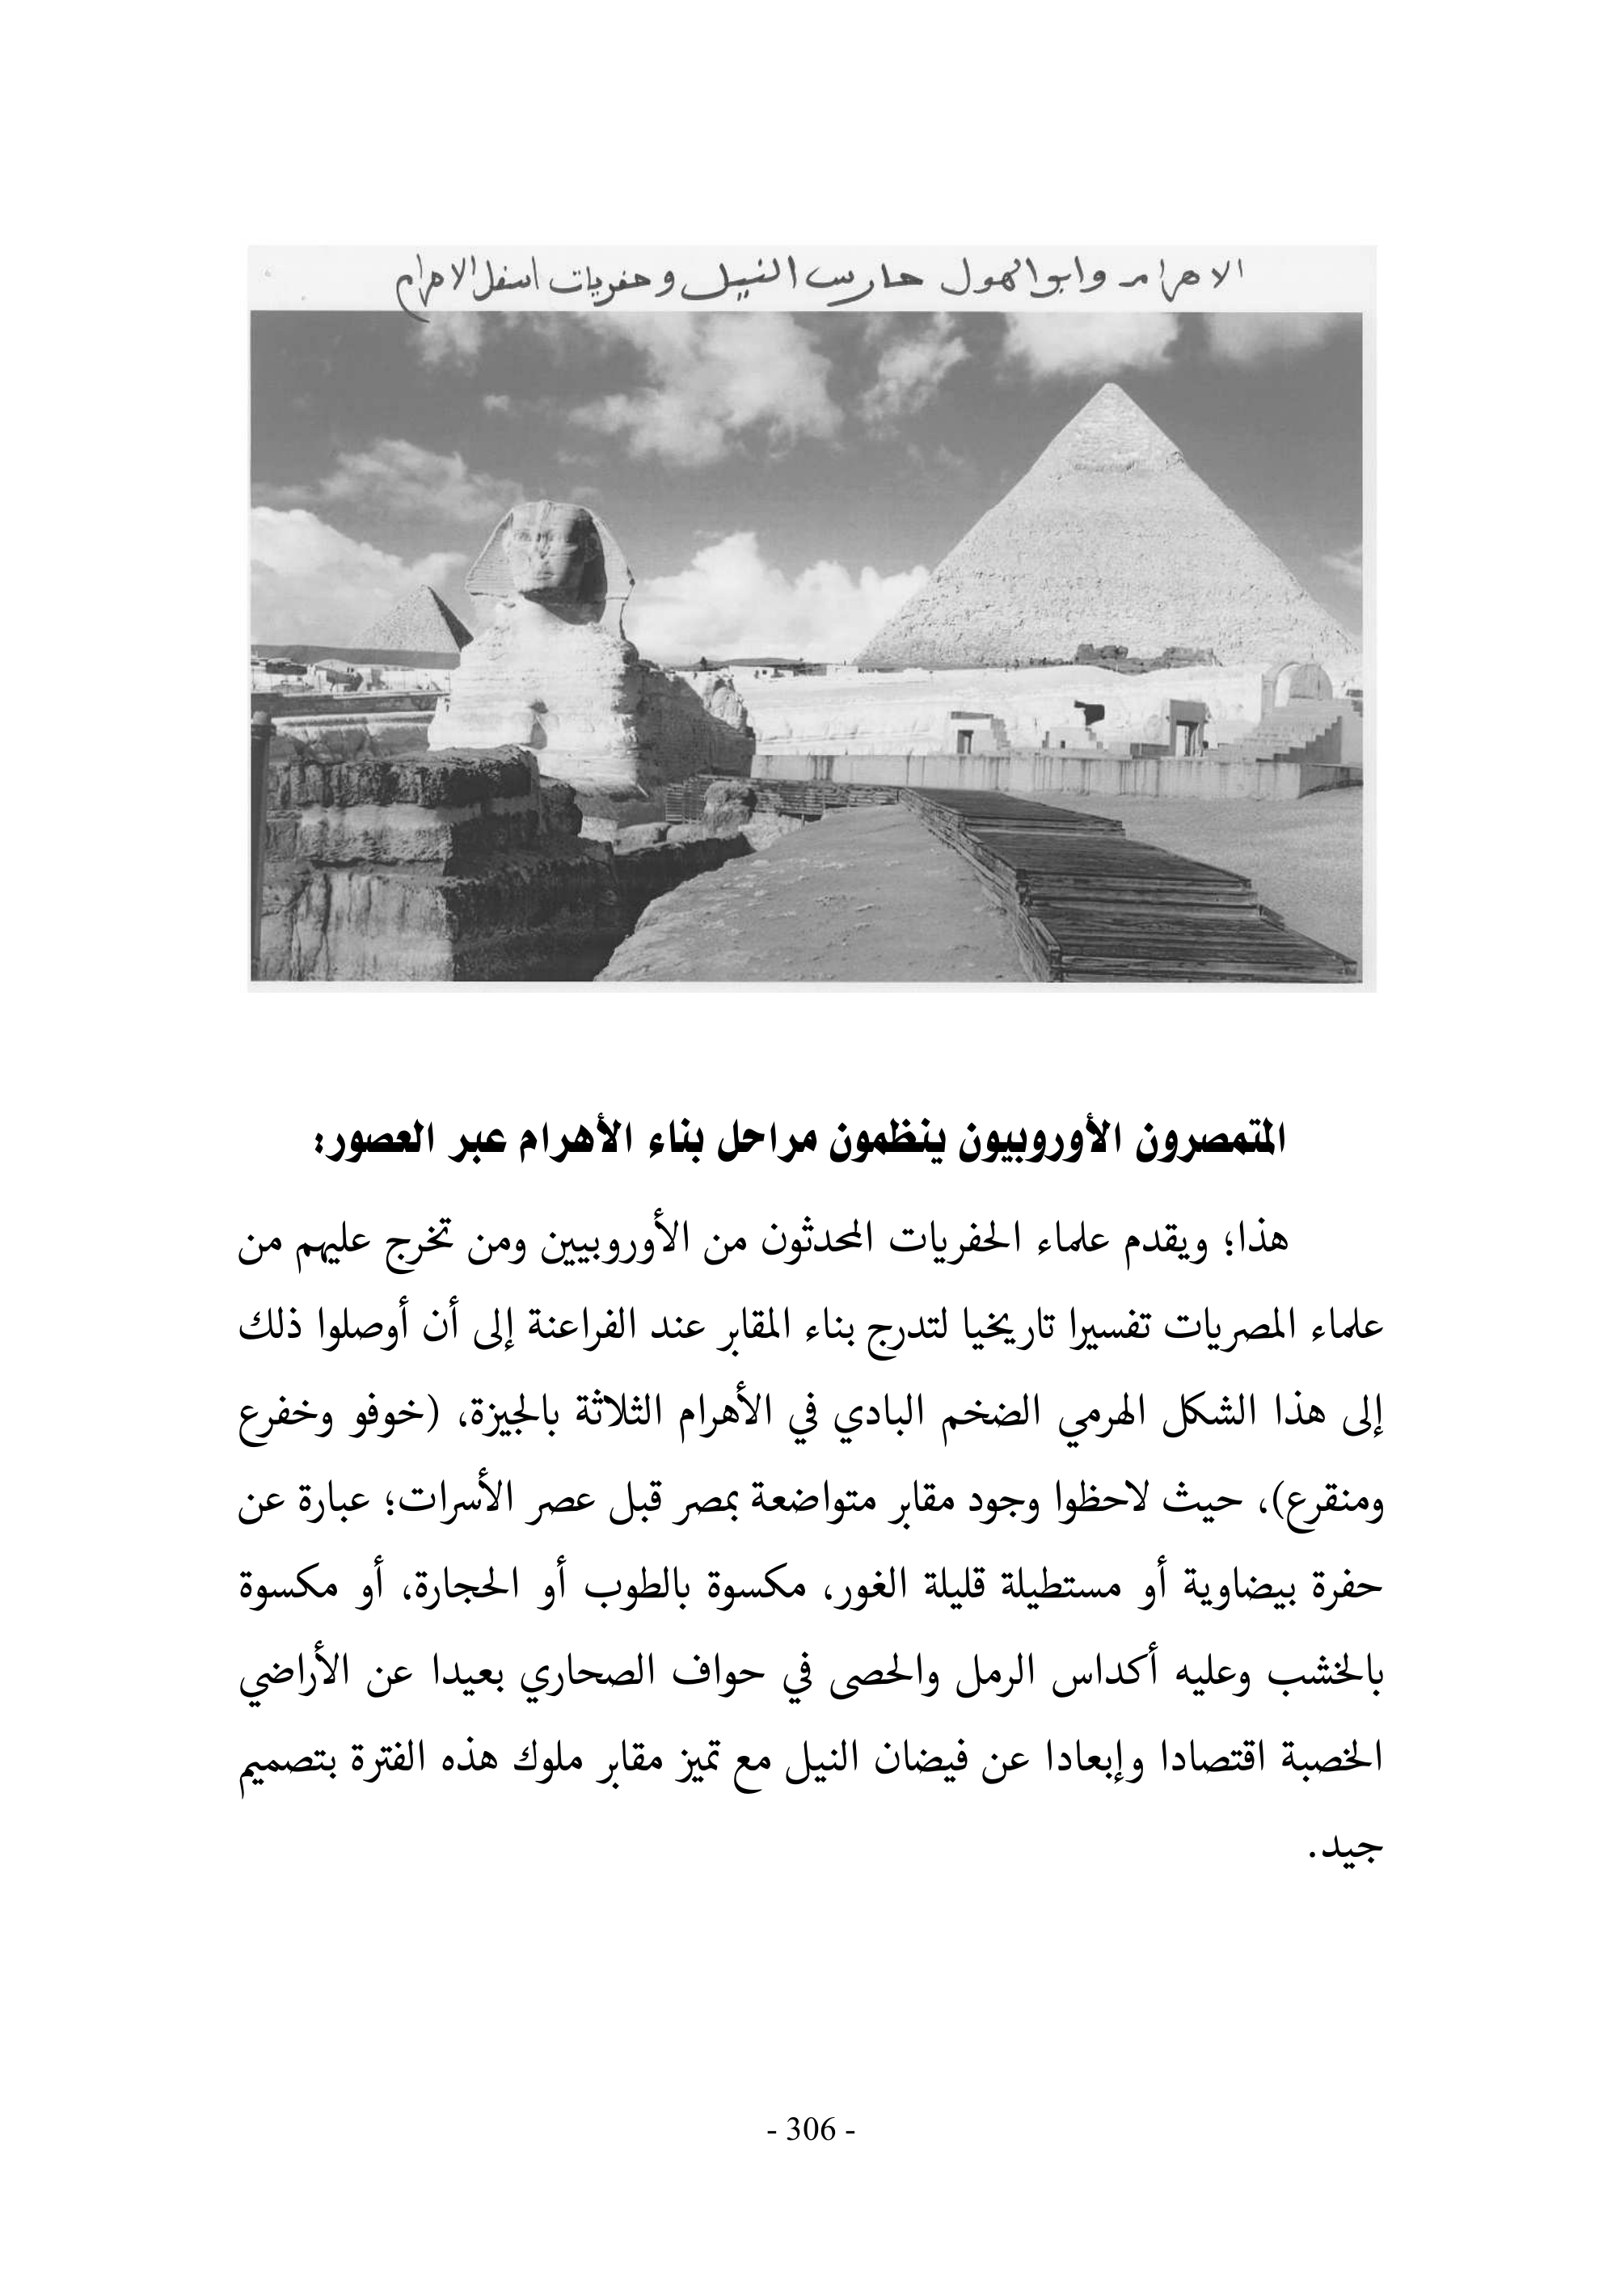 الاهرام وابو الهول حارس النيل وحفريات اسفل الاهرام
المتمصرون الأوروبيون ينظمون مراحل بناء الأهرام عبر العصور:
هذا؛ ويقدم علماء الحفريات المحدثون من الأوروبيين ومن تخرج عليهم من
علماء المصريات تفسيرا تاريخيا لتدرج بناء المقابر عند الفراعنة إلى أن أوصلوا ذلك
إلى هذا الشكل الهرمي الضخم البادي في الأهرام الثلاثة بالجيزة، (خوفو وخفرع
ومنقرع)، حيث لاحظوا وجود مقابر متواضعة بمصر قبل عصر الأسرات؛ عبارة عن
حفرة بيضاوية أو مستطيلة قليلة الغور، مكسوة بالطوب أو الحجارة، أو مكسوة
بالخشب وعليه أكداس الرمل والحصى في حواف الصحاري بعيدا عن الأراضي
الخصبة اقتصادا وإبعادا عن فيضان النيل مع تميز مقابر ملوك هذه الفترة بتصميم
جيد.
- 306 -